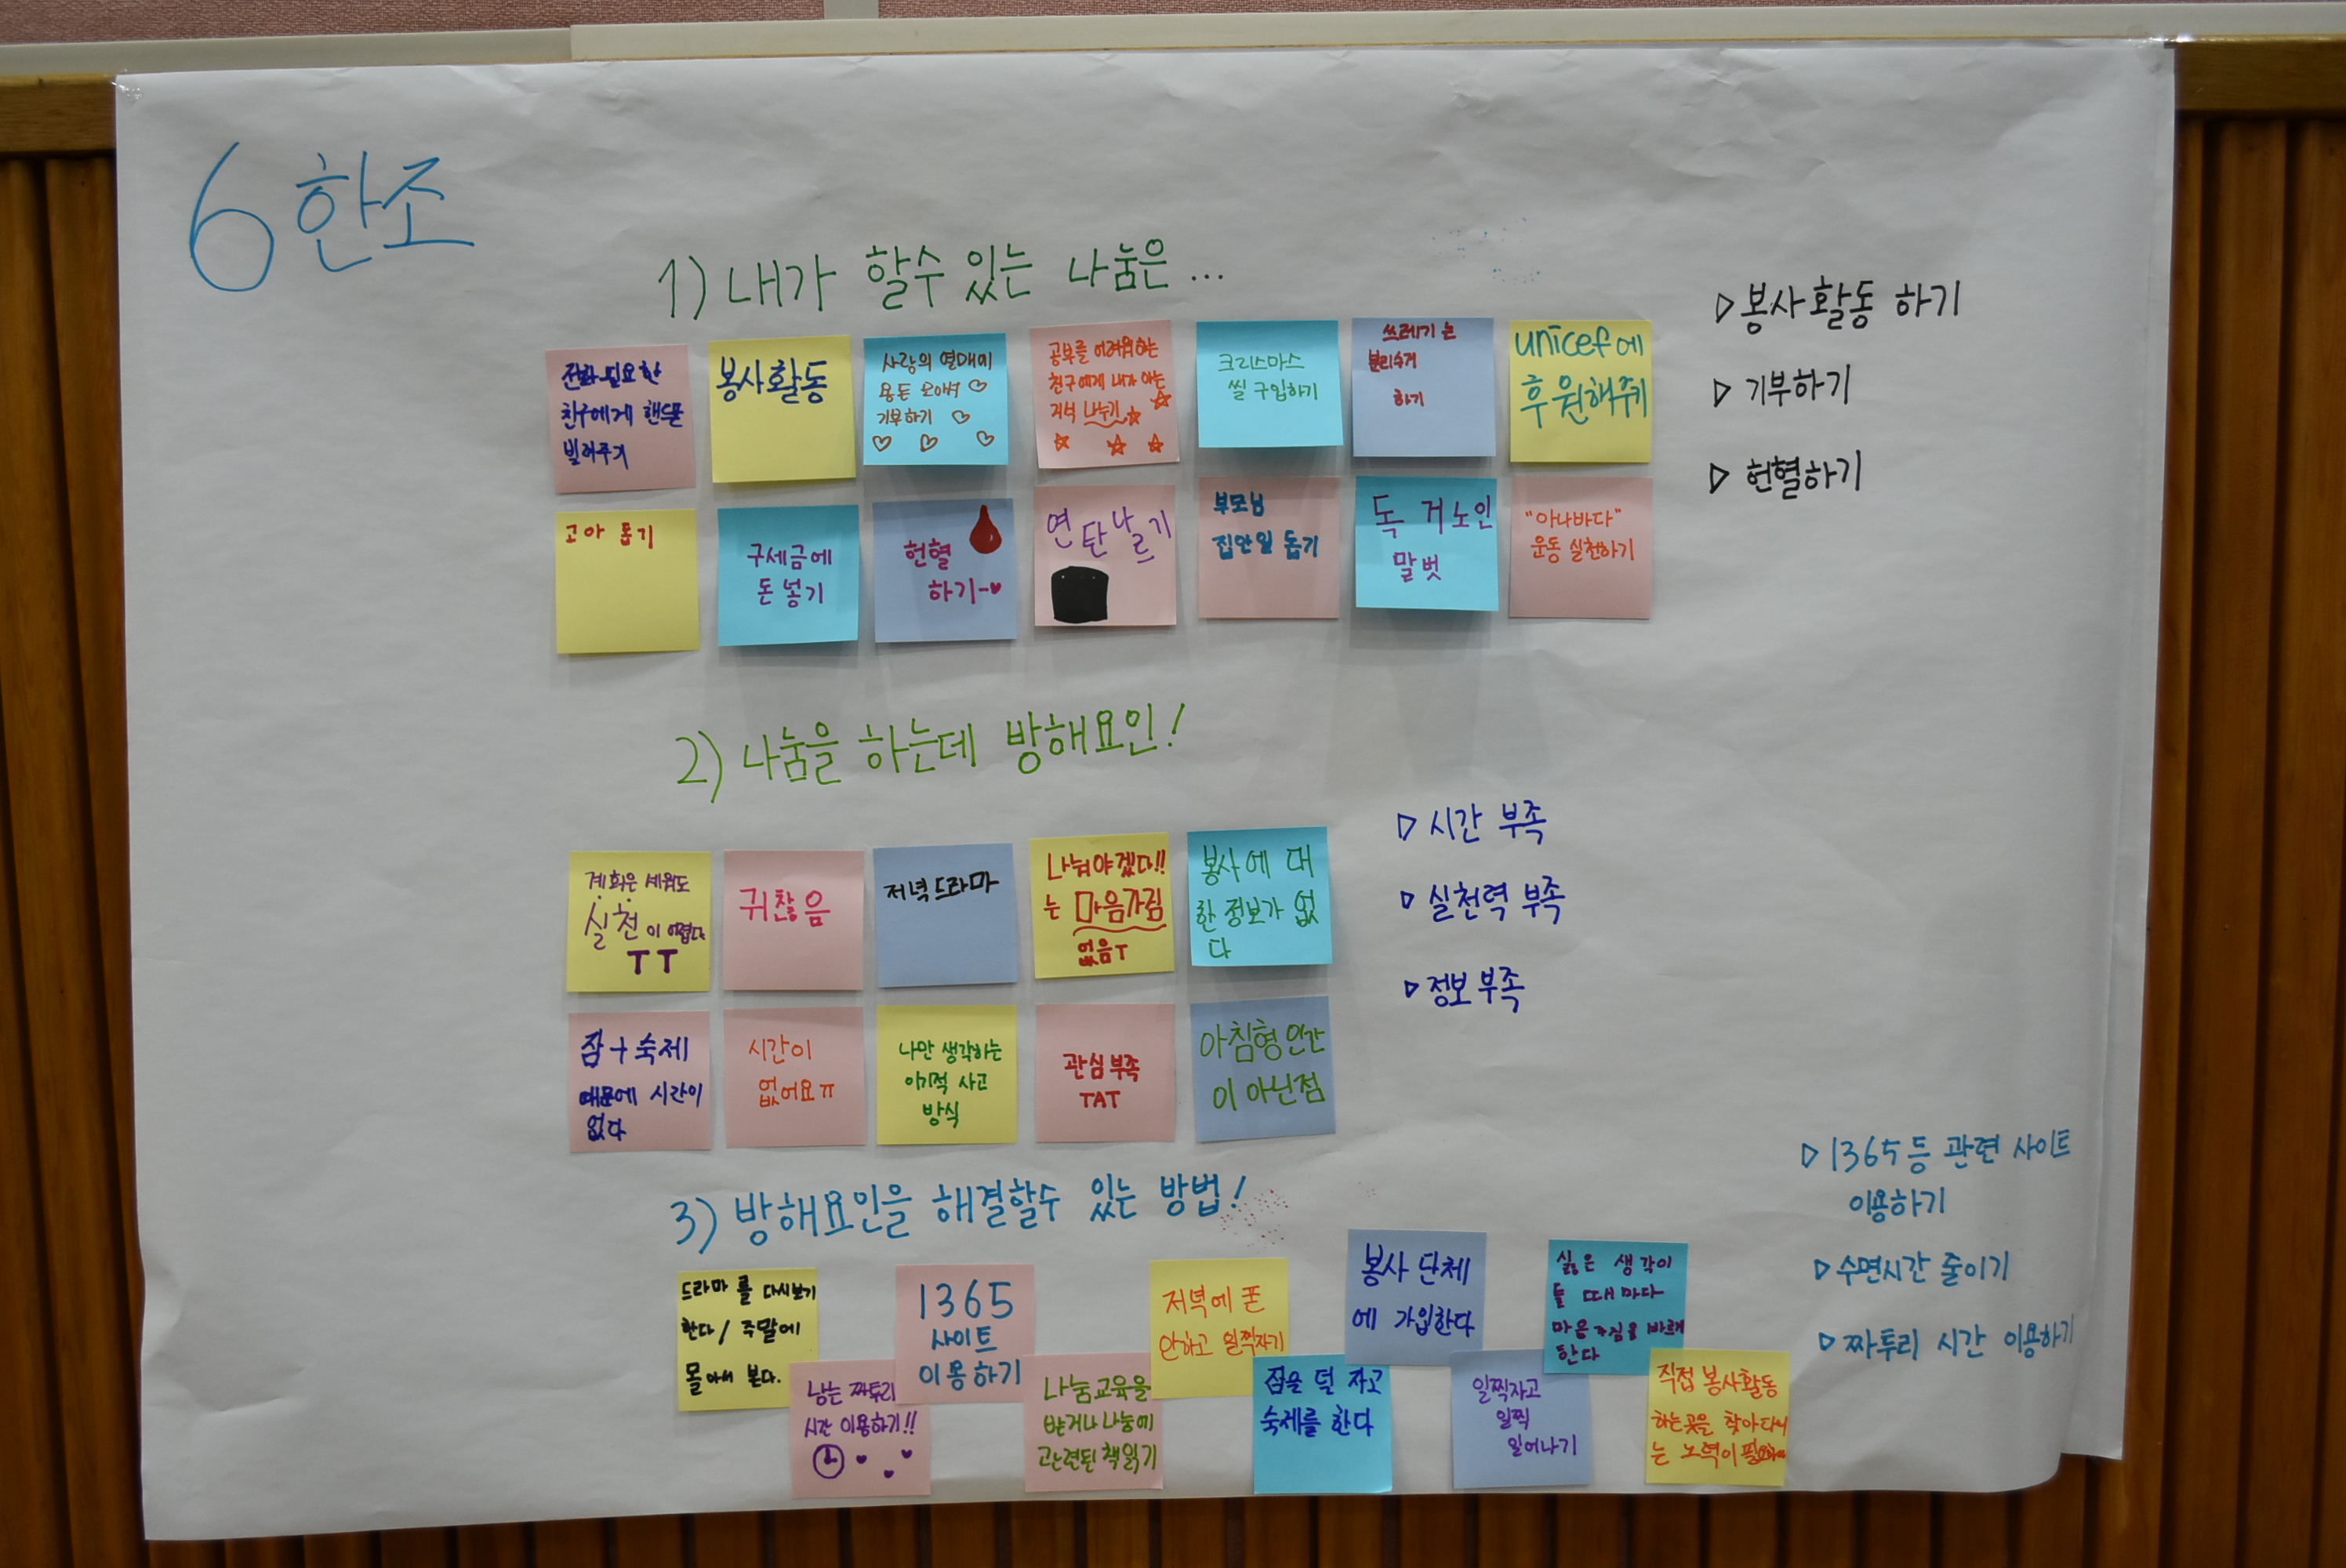 6한조
1) 내가 할수 있는 나눔은...
전화 필요한
친구에게 핸드폰
빌려주기
봉사활동
사랑의 열매에
용돈 모아서
기부하기
공부를 어려워하는
친구에게 내가 아는
지식 나누기
크리스마스
씰 구입하기
쓰레기는
분리수거
하기
unicef에
후원해주기
▷봉사활동 하기
▷ 기부하기
▷ 헌혈하기
고아 돕기
구세금에
돈 넣기
헌혈
하기~♥
연탄나르기
부모님
집안일 돕기
독거노인
말벗
"아나바다"
운동 실천하기
2) 나눔을 하는데 방해요인!
계획은 세워도
실천이 어렵다
TT
귀찮음
저녁드라마
나눠야겠다!!
는 마음가짐
없음T
봉사에 대
한 정보가 없
다
▷ 시간 부족
▷ 실천력 부족
▷ 정보 부족
잠+숙제
때문에 시간이
없다
시간이
없어요ㅠ
나만 생각하는
이기적 사고
방식
관심 부족
TAT
아침형 인간
이 아닌점
3) 방해요인을 해결할수 있는 방법!
드라마를 다시보기
한다/ 주말에
몰아서 본다.
남는 짜투리
시간 이용하기!!
1365
사이트
이용하기
나눔교육을
받거나 나눔에
관련된 책읽기
저녁에 폰
안하고 일찍자기
잠을 덜 자고
숙제를 한다
봉사 단체
에 가입한다
일찍자고
일찍
일어나기
싫은 생각이
들 때마다
마음가짐을 바르게
한다
직접 봉사활동
하는곳을 찾아다니
는 노력이
▷ 1365등 관련 사이트
이용하기
▷ 수면시간 줄이기
▷ 짜투리 시간 이용하기